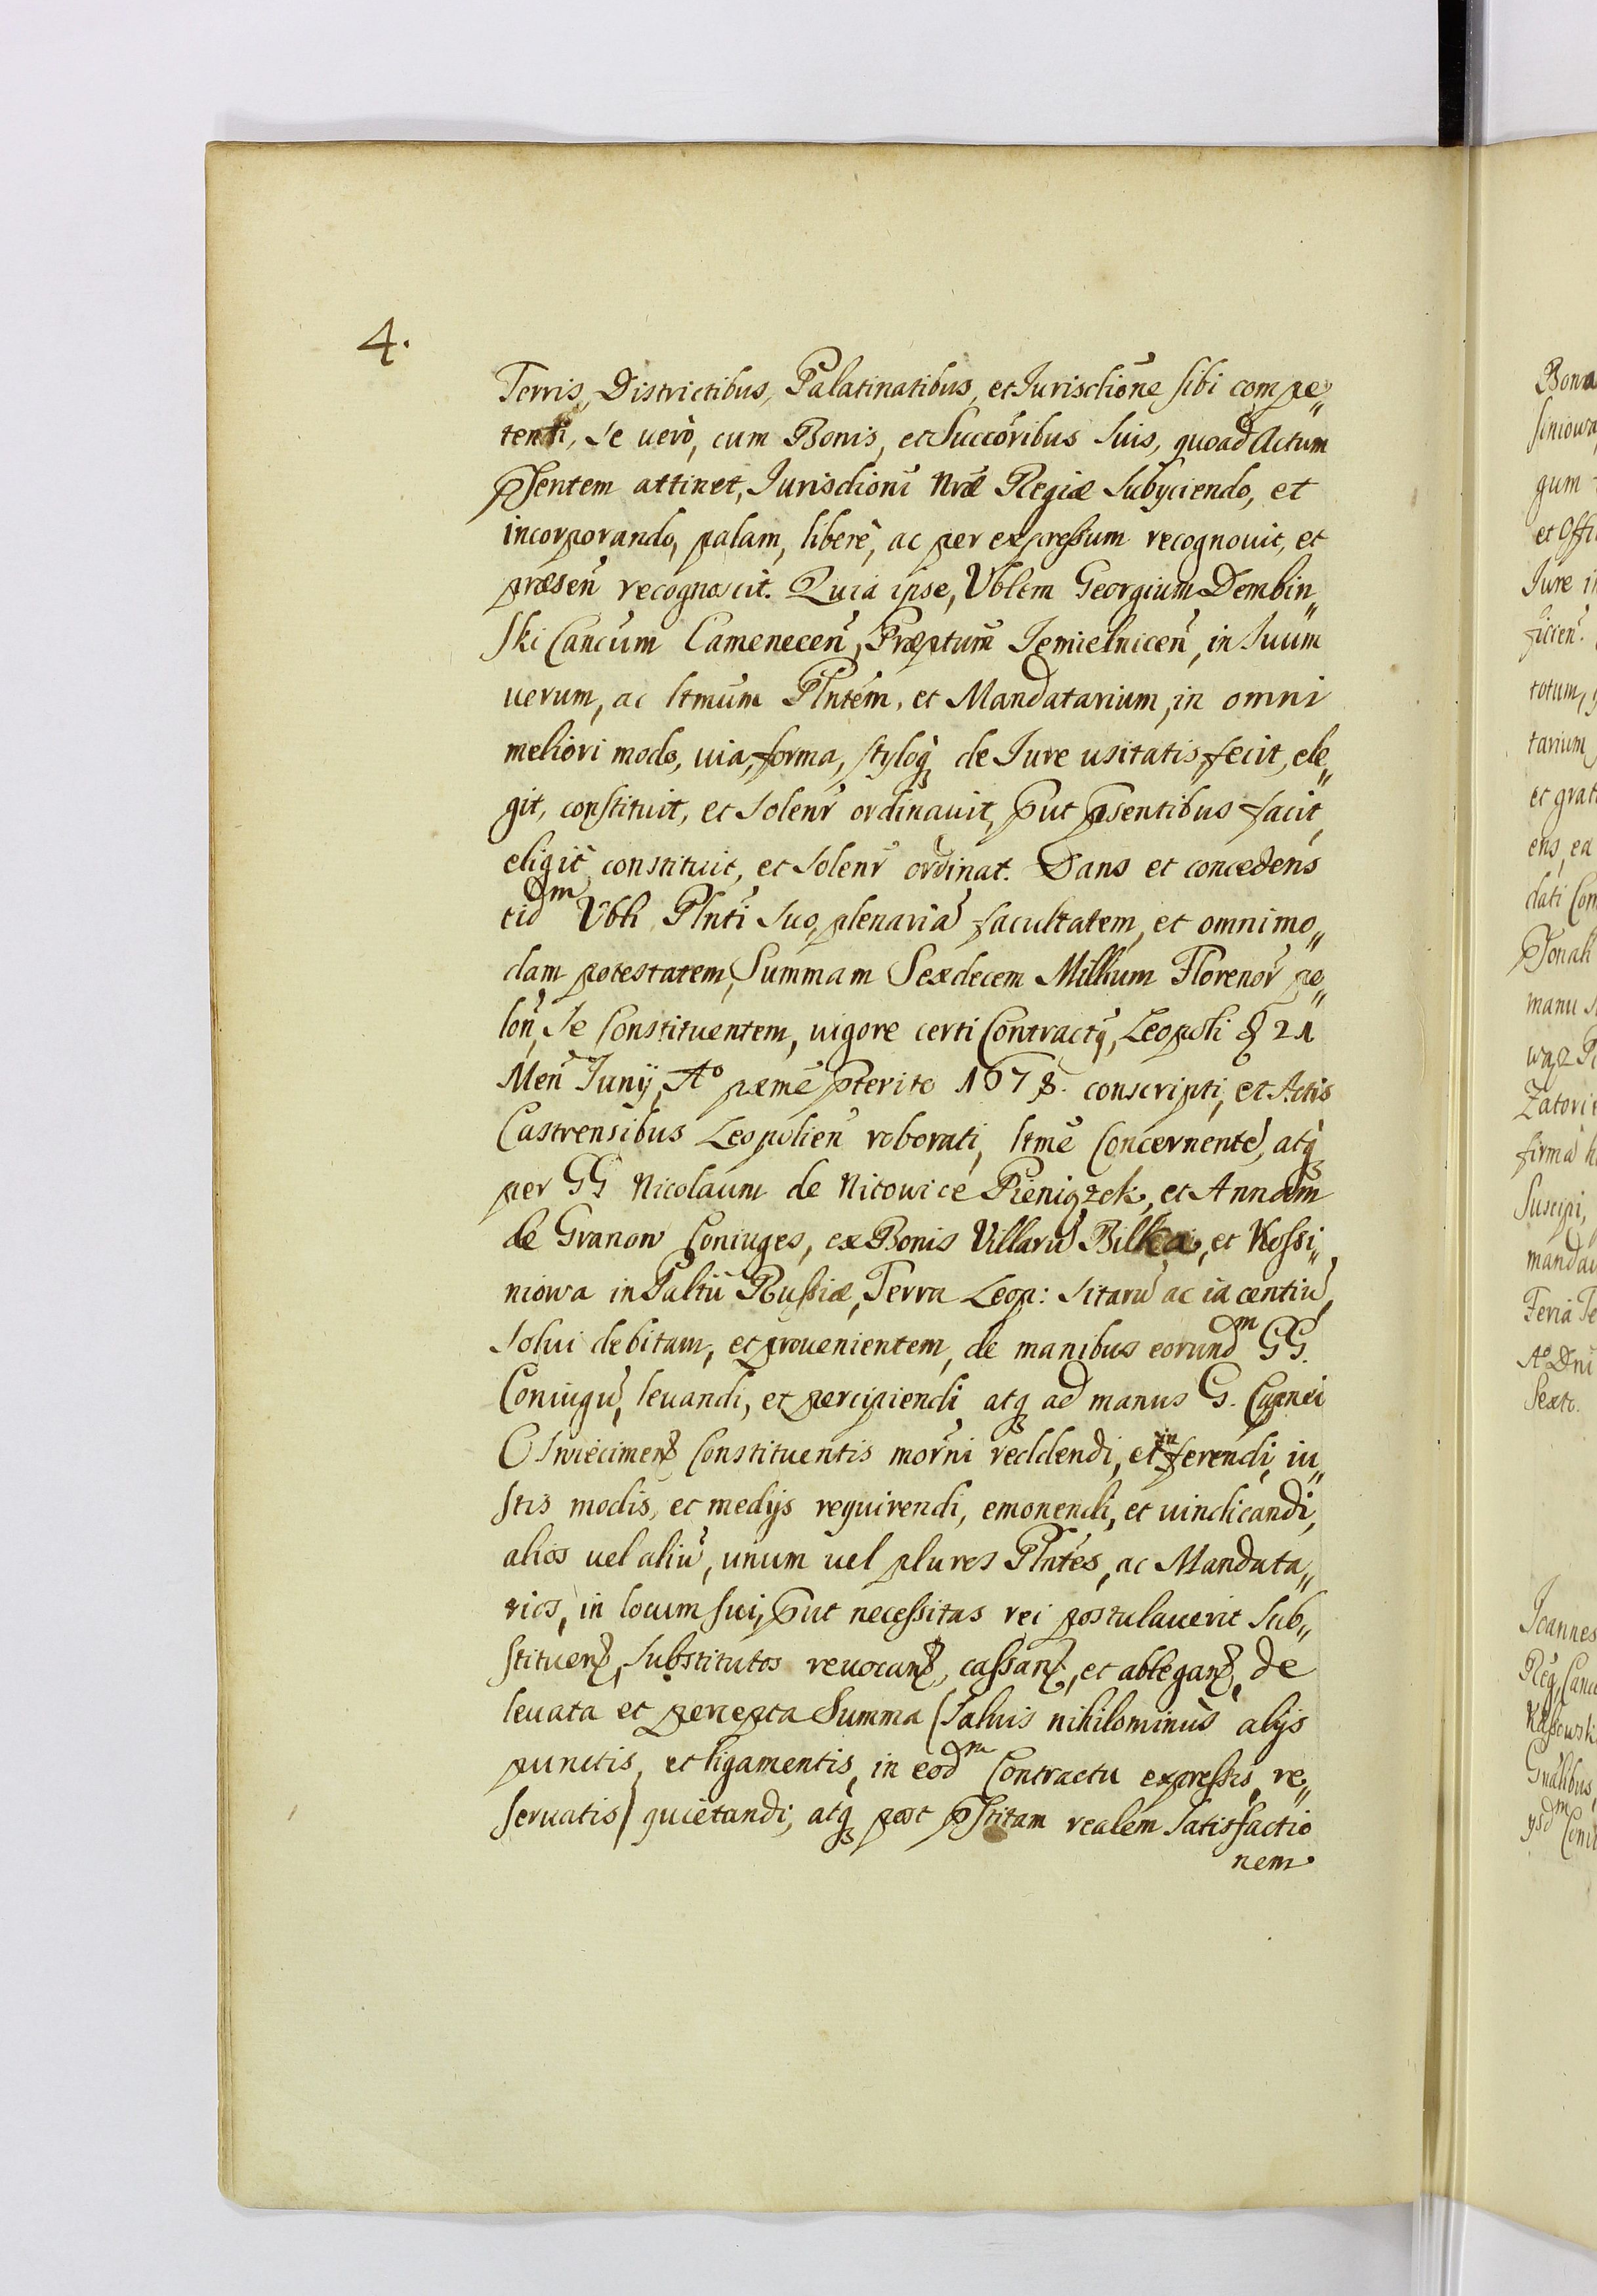 4.
Terris, Districtibus, Palatinatibus, et Jurisdiōne sibi compe„
tenti, Se uerò, cum Bonis, et Succōribus Suis, quoad Actum
pn̄tem attinet, Jurisdioni Nr̄æ Regiæ Subyciendo, et
incorporando, palam, liberè, ac per expressum recognouit, et
præsen̄ recognoscit. Quia ipse, Vblem Georgium Dembin„
ski Cancum Camenecen̄, Præptum Jemielnicen̄, in Suum
uerum, ac ltmum Plntem, et Mandatarium, in omni
meliori modo, uia, forma, styloq, de Jure usitatis, fecit, ele„
git, constituit, et Solenr̄ ordinauit, put psentibus facit,
eligit constituit, et Solenr̄ ordinat. Dans et concedens
eidm Vbli Plnti Suo, plenariā facultatem, et omnimo„
dam potestatem, Summam Sexdecem Millium Florenor̄ po„
lon̄, Se Constituentem, uigore certi Contractq, Leopoli 21
Men̄ Junij, Ao pxme pterito 1678. conscripti, et Actis
Castrensibus Leopolien̄ roborati, ltme Concernente, atq
per GG Nicolaum de Nitowice Pieniązek, et Annam
de Granow Coniuges, ex Bonis Villarū Bilka, et Kossi„
niowa in Paltu Russiæ, Terra Leop: Sitarū ac iacentiū,
Solui debitam, et prouenientem, de manibus eorundm GG.
Coniugū, leuandi, et percipiendi atq ad manus G. Capnei
Oswiecimen̄ Constituentis mor̄ni reddendi, et inferendi, iu„
stis modis, et medijs requirendi, emonendi, et uindicandi,
alios uel aliū, unum uel plures Plntes, ac Mandata„
rios, in locum sui, put necessitas rei postulauerit Sub„
stituen̄, Substitutos reuocan̄, cassan̄, et ablegan̄, de
leuata et percepta Summa (Saluis nihilominùs alijs
punctis, et ligamentis, in eodm Contractu expressis, re„
seruatis) quietandi, atq post pstitam realem Satisfactio
nem